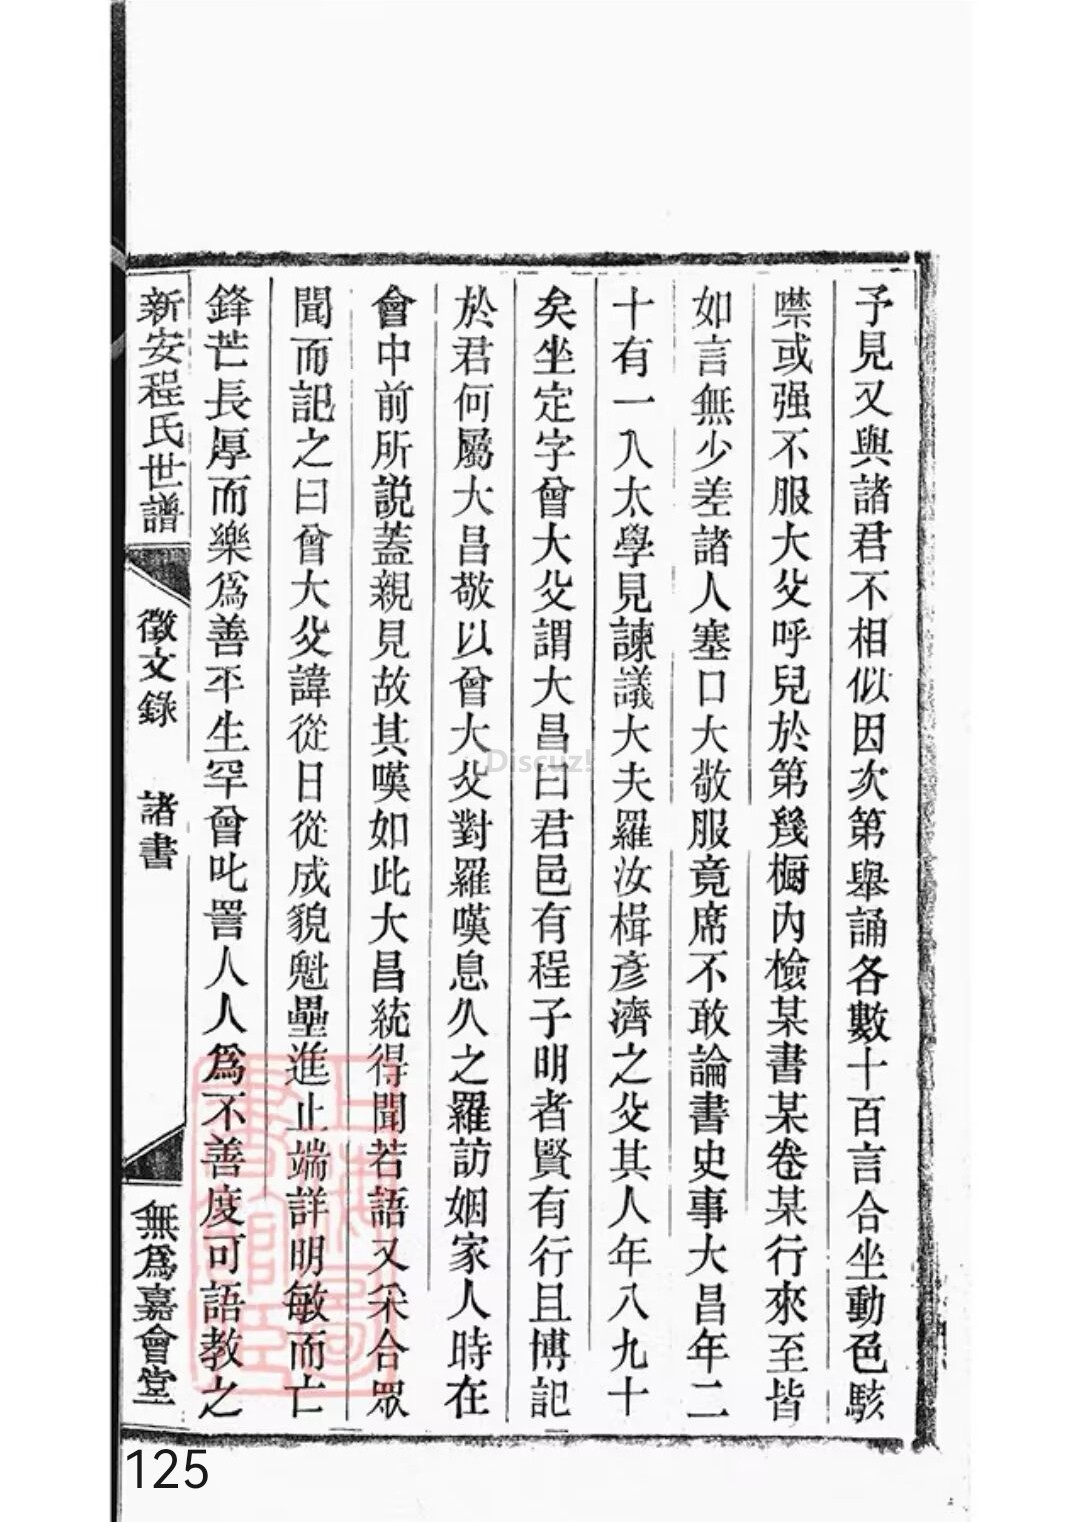 予見又與諸君不相似因次第舉誦各數十百言合坐動色駭
噤或强不服大父呼兒於第幾橱內檢某書某卷某行來至皆
如言無少差諸人塞口大敬服竟席不敢論書史事大昌年二
十有一入太學見諫議大夫羅汝楫彥濟之父其人年八九十
矣坐定字曾大父謂大昌曰君邑有程子明者賢有行且博記
於君何屬大昌敬以曾大父對羅嘆息久之羅訪姻家人時在
會中前所説蓋親見故其嘆如此大昌統得聞若語又采合眾
聞而記之曰曾大父諱從日從成貌魁壘進止端詳明敏而亡
鋒芒長厚而樂爲善平生罕曾叱詈人人爲不善度可語教之
新安程氏世譜
徵文錄 諸書
無爲嘉會堂
上海圖書館藏
Discuz!
125